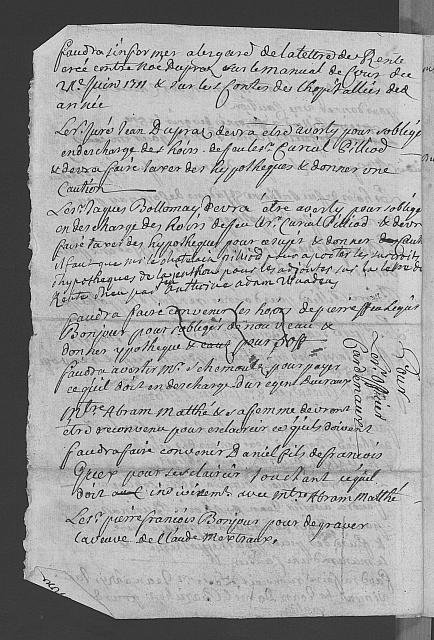 faudra s'informer a legard de la lettre de Rente
créé contre Noé Dupraz sur le manual de Cour du
21e Juin 1711 & sur les Contes des hopitalliers de d
année
Le Sr Juré Jean Dupra devra etre averty pour soblige
en descharge des hoirs de feu le Sr Curial Pilliod
& devra faire taxer des hypotheques & donner une
Caution
Le Sr Jaques Bollomay devra etre averty pour soblige
en descharge des hoirs de feu le Sr Curial Pilliod & devr
faire taxer des hypotheques pour ce sujet & donner
il faut que sur le chatelain Pilliod plus ajouter les surdits
hypotheques de pour les adjouter sur la lettre de
Rente par Anthoine Adam
faudra faire convenir les hoirs de pierre ffeu Legier
Bonjour pour s'obliger de nouveau &
donner ypotheque & caux pour
faudra avertir Mr Schemoule pour payer
ce quil doit en descharge du regent Duvaux
Mtre Abram Matthé & sa femme devront
etre reconvenu pour enclaircir ce quils doivent
faudra faire convenir Daniel fils de francois
Quer pour sesclaircir touchant ce quil
doit avec Mtre Abram Matthé
Le Sr pierre francois Bonjour pour degraver
la veuve de Claude
Pour
Le Sr officier